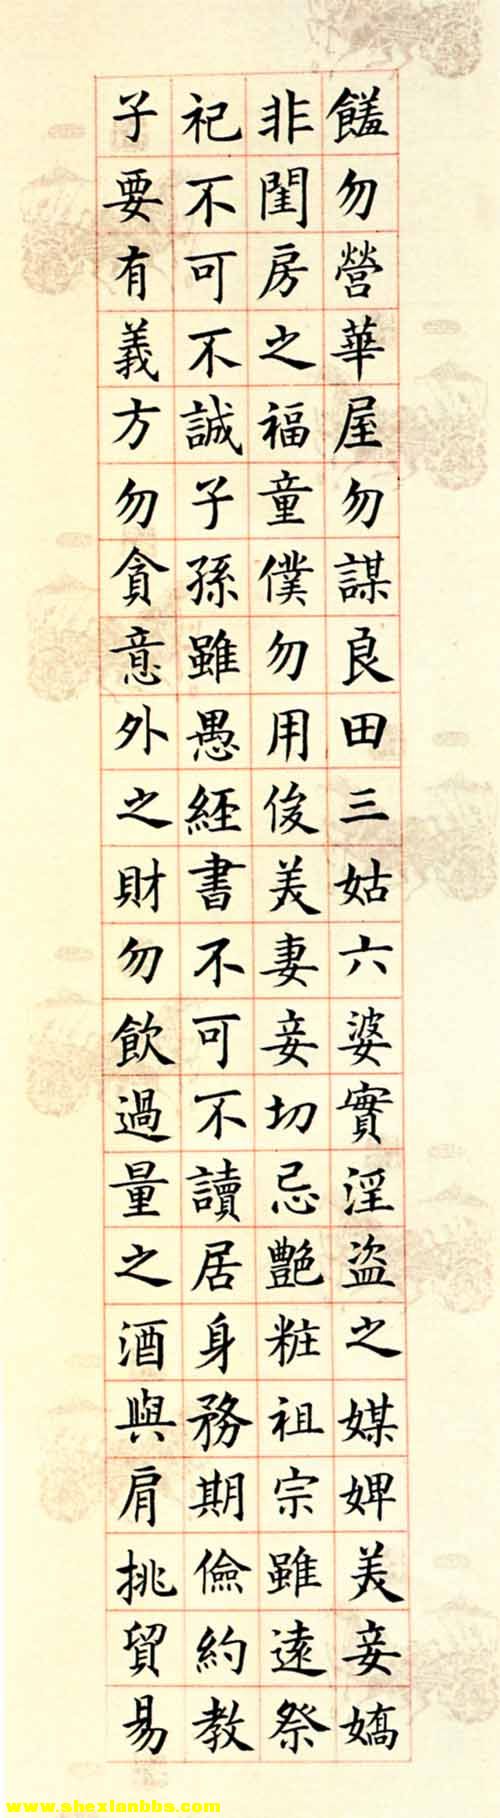 饈勿營華屋勿謀良田三姑六婆實淫盜之媒婢美妾嬌
非閨房之福童僕勿用俊美妻妾切忌艷粧祖宗雖遠祭
祀不可不誠子孫雖愚經書不可不讀居身務期儉約教
子要有義方勿貪意外之財勿飲過量之酒與肩挑貿易
www.shexianbbs.com